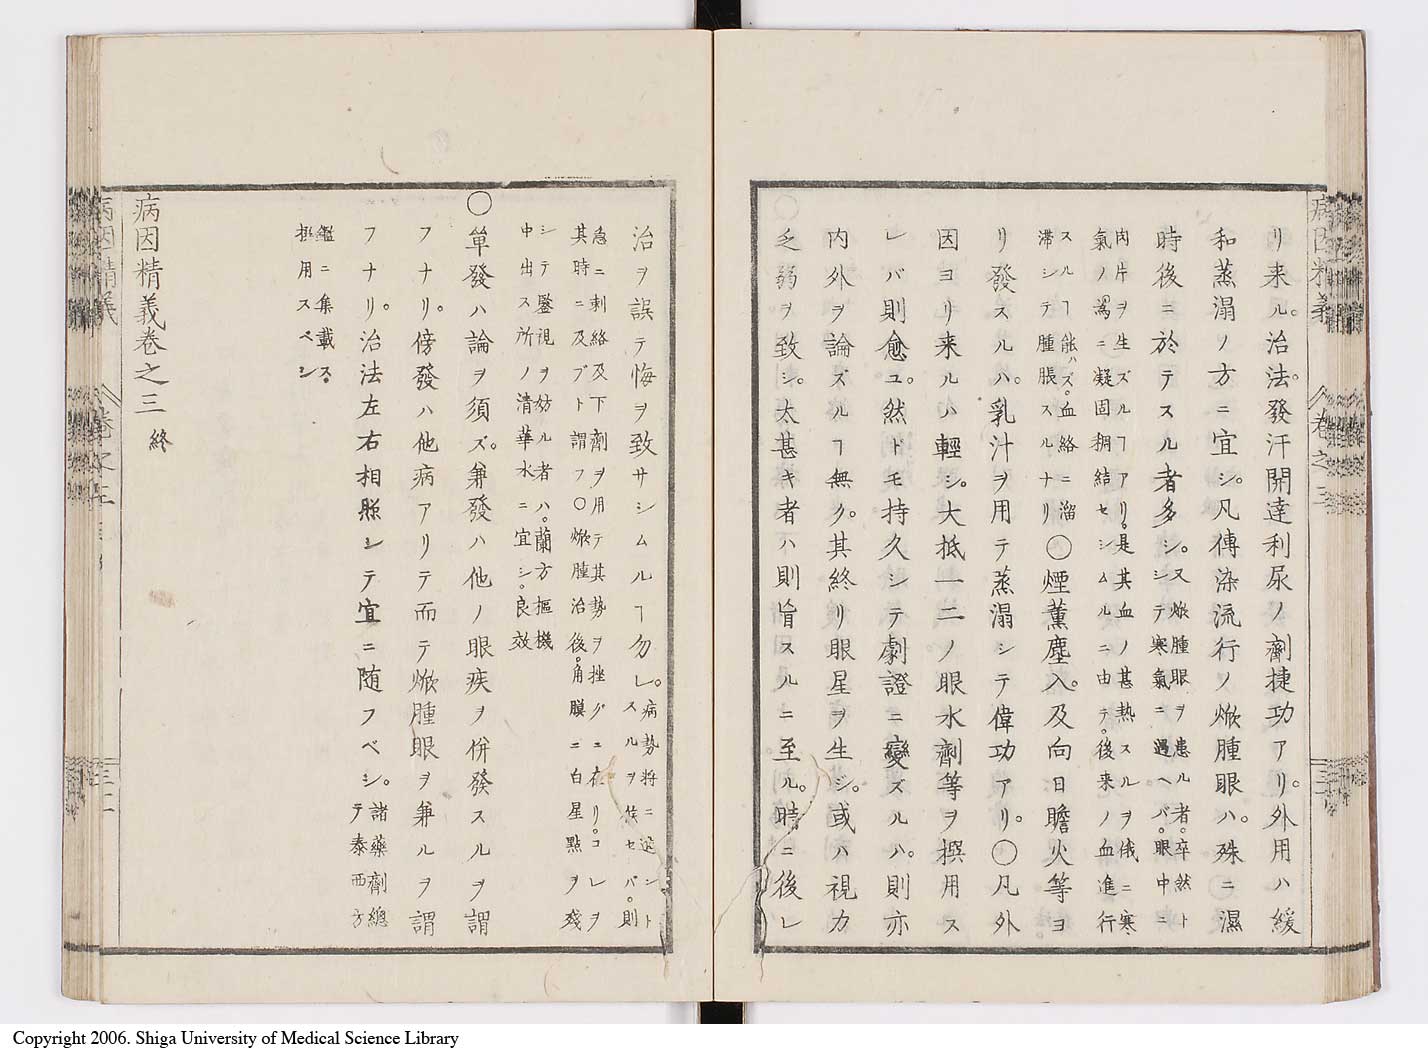 リ来ル。治法。發汗開達利尿ノ劑捷功アリ。外用ハ緩
和蒸溻ノ方ニ宜シ。凡傳染流行ノ焮腫眼ハ。殊ニ濕
時後ニ於テスル者多シ。又焮腫眼ヲ患ル者。卒然ト
シテ寒氣ニ遇ヘバ。眼中ニ
肉片ヲ生ズルヿアリ。是其血ノ甚熱スルヲ俄ニ寒
氣ノ為ニ凝固稠結セシムルニ由テ。後来ノ血進行
スルヿ能ハズ。血絡ニ溜
滞シテ腫脹スルナリ
〇煙薫塵入。及向日瞻火等ヨ
リ發スルハ。乳汁ヲ用テ蒸溻シテ偉功アリ。〇凡外
因ヨリ来ルハ輕シ。大抵一二ノ眼水劑等ヲ撰用ス
レバ則愈ユ。然トモ持久シテ劇證ニ變ズルハ。則亦
内外ヲ論ズルヿ無ク。其終リ眼星ヲ生シ。或ハ視力
乏弱ヲ致シ。太甚キ者ハ則旨スルニ至ル。時ニ後レ
病因精義
巻之三
治ヲ誤テ悔ヲ致サシムルヿ勿レ。病勢将ニ
スルヲ候セバ。則
急ニ刺絡及下劑ヲ用テ其勢ヲ挫グニ在リ。コレヲ
其時ニ及ブト謂フ〇焮腫治後。角膜ニ白星點ヲ残
シテ鑒視ヲ妨ル者ハ。蘭方樞機
中出ス所ノ清華水ニ宜シ。良效
〇單發ハ論ヲ須ズ。兼發ハ他ノ眼疾ヲ併發スルヲ謂
フナリ。傍發ハ他病アリテ而テ焮腫眼ヲ兼ルヲ謂
フナリ。治法左右相照シテ宜ニ随フベシ。諸藥劑總
テ泰西方
鑑ニ集載ス。
撰用スベシ
病因精義巻之三終
病因精義
巻之三
三十二